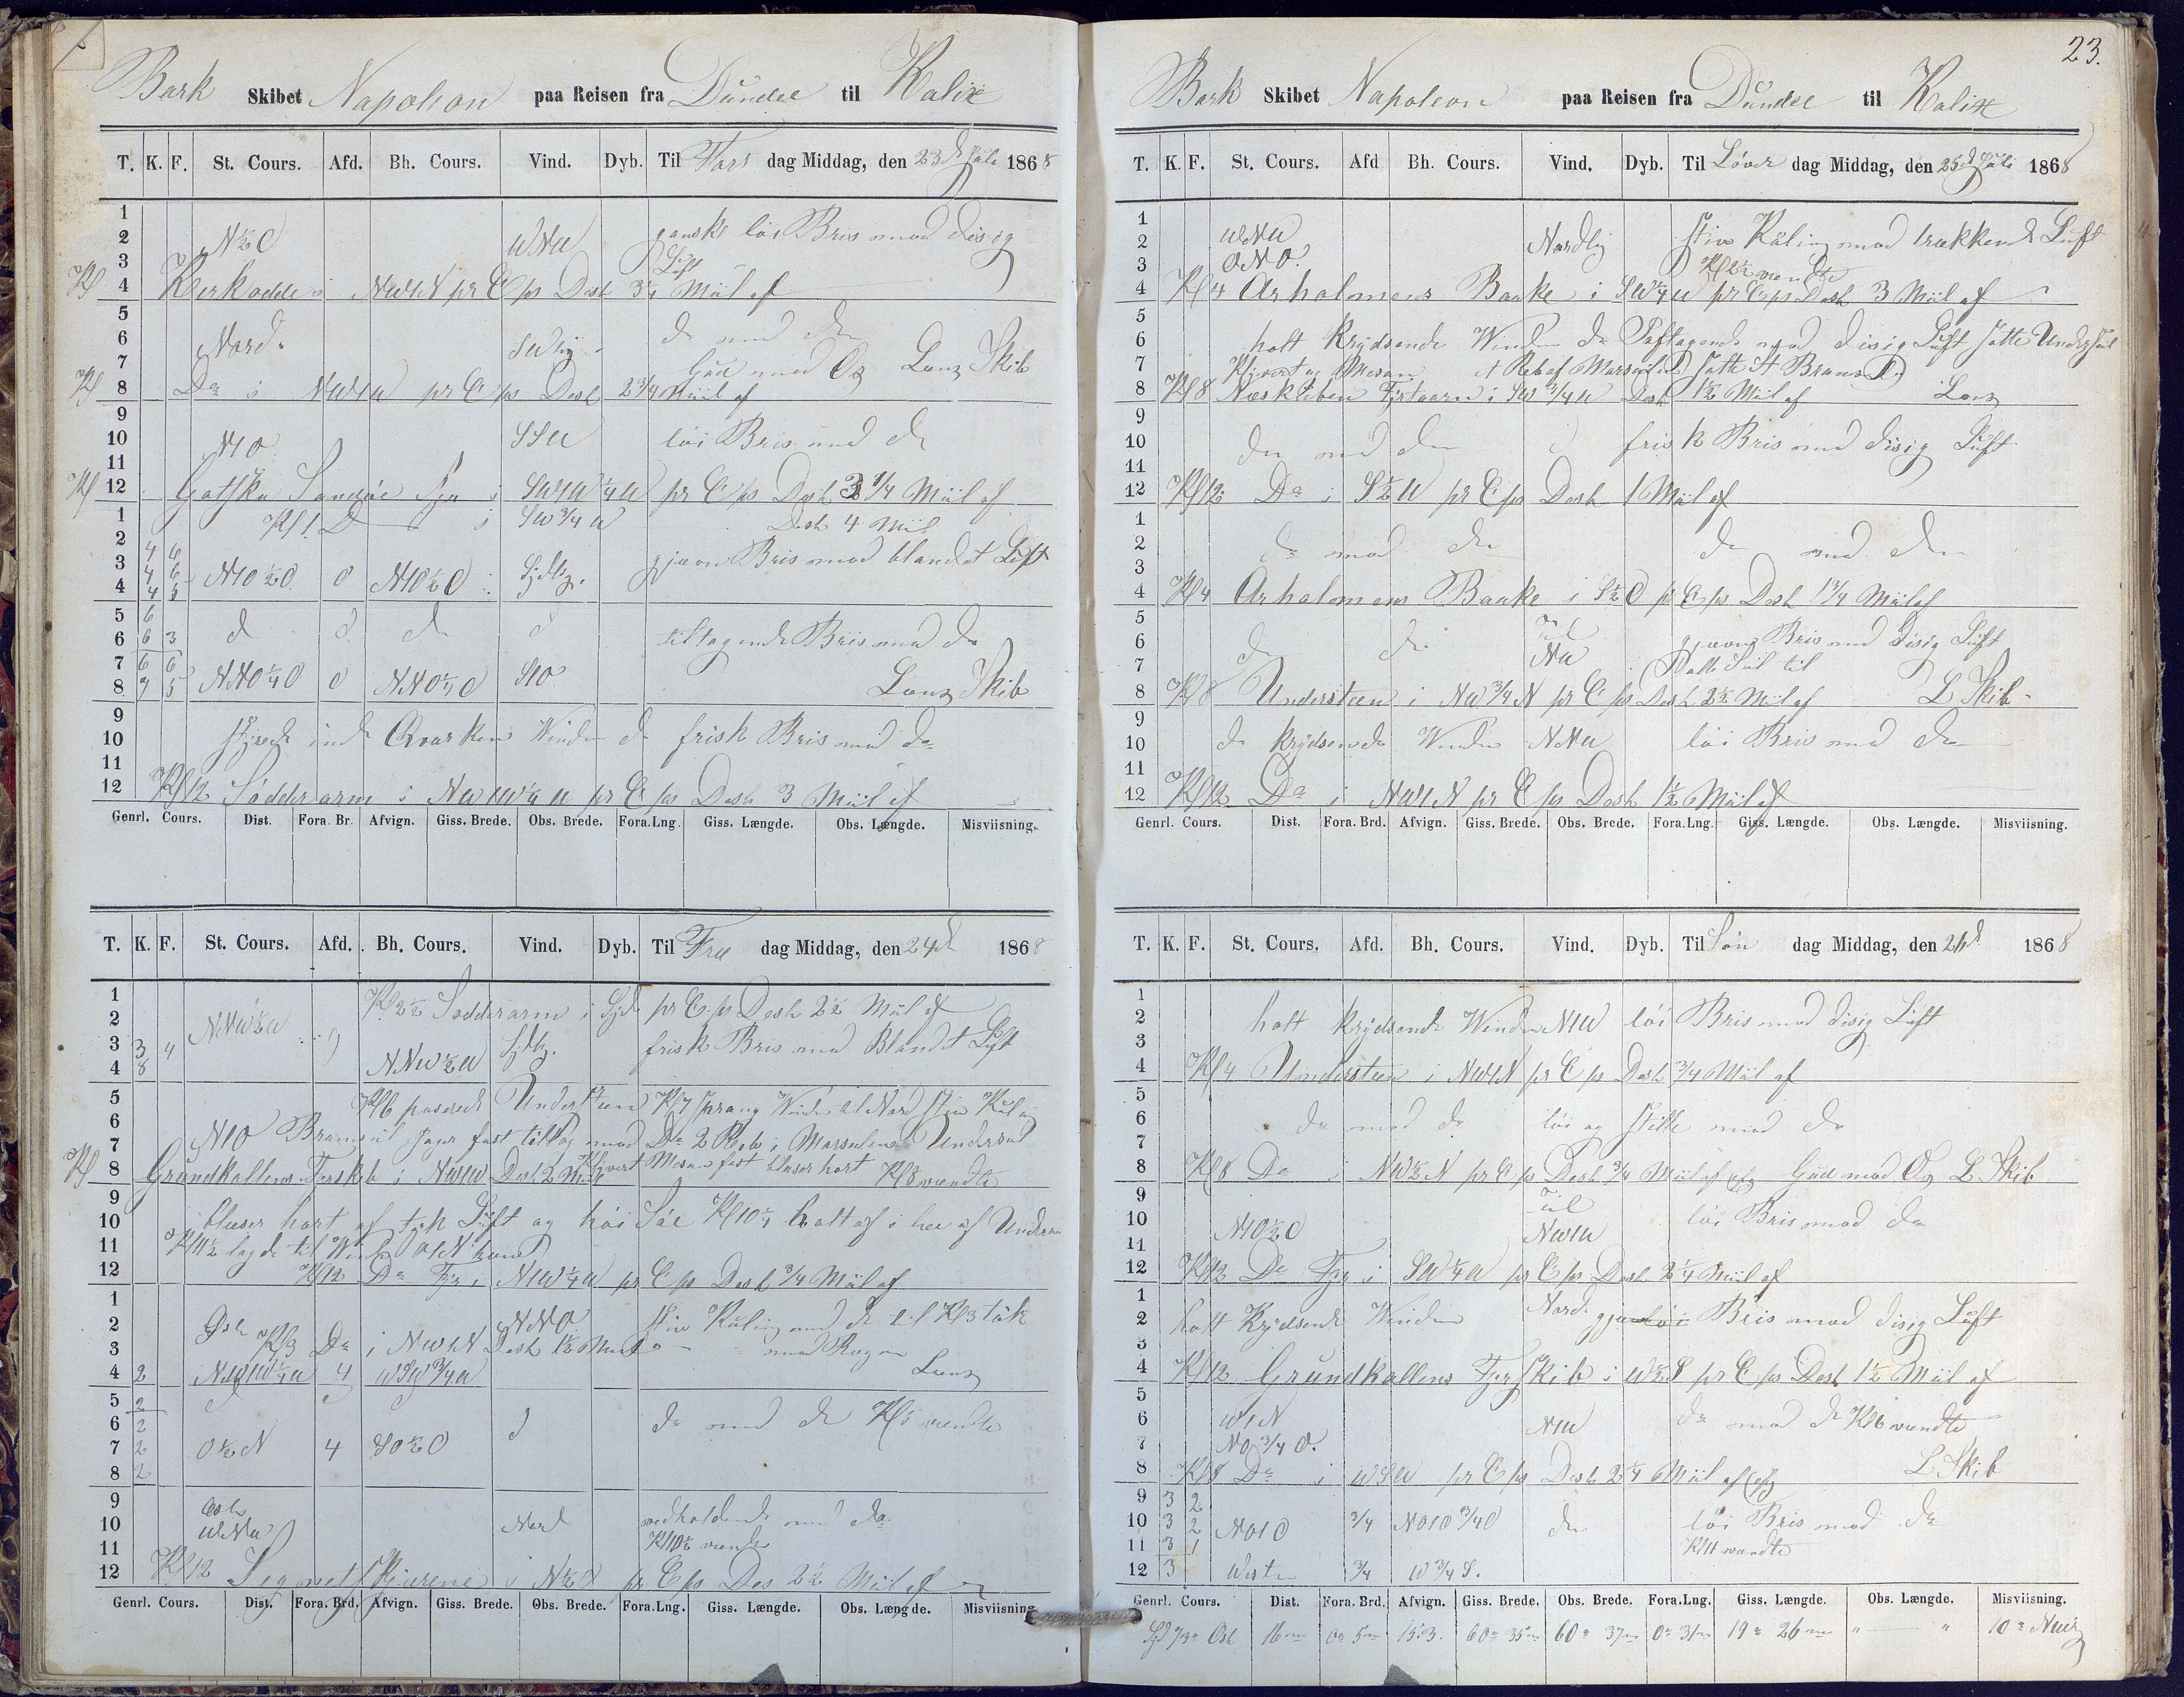 Bark Skibet Napoleon paa Reisen fra Dundee til Kalix
T. K. F. St. Cours. Afd. Bh. Cours. Vind. Dyb. Til Tors dag Middag, den 23d Juli 1868
1
2 N½O WNW ganske löi Bris med disig
3 Luft
Kl 4 i NW1N pr Cps Dest 3¼ Miil af
5
6 Nord. SWlig. do med do
7 Gud med Os Lens Skib
Kl 8 Do i NW1W pr Cps Dest 2¾ Miil af
9
10 N1O SSW löi Bris med do
11
Kl 12 Gotska Sandöe Fyr i SW1W¼W pr Cps Dest 3¼ Miil af
1 Kl 1 D i SW¾W Dest 4 Miil
2 4 6
3 4 6 N1O½O 0 N1O½O Sydlig. jævn Bris med blandet Luft
4 4 5
5 6
6 6 3 d d d d tiltagende Bris med do
7 6 6
8 7 5 NNO¼O 0 NNO¼O S1O Lens Skib
9
10 styrede ind Qvarken Vinden do frisk Bris med do
11
12 Kl 12 Södderarm i NW1W¼W pr Cps Dest 3 Miil af
Genrl. Cours. Dist. Fora. Br. Afvign. Giss. Brede. Obs. Brede. Fora.Lng. Giss. Længde. Obs. Længde. Misviisning.
T. K. F. St. Cours. Afd. Bh. Cours. Vind. Dyb. Til Fre dag Middag, den 24d 1868
1 Kl 2½ Södderarm i Syd pr Cps Dest 2½ Miil af
2 NNW½W
3 3 4 NNW½W Sydlig. frisk Bris med Blandet Luft
4 8
5 Kl 6 paserede Understeen Kl 7 sprang Vinden til Nord stiv Kuling
6
7 N1O Bramseil Jager fast tiltog med Do 2 Reb i Marseilene Underseil
Kl 8 Grundkallens Fyrskib i NW1W Dest 2 Miil Klyvert Mesan fast blæser hart Kl 8 vendte
9
10 blæser hart af tyk Luft og höi Söe Kl 10¼ holtt af i læ af Understeen
11 Kl 11½ lagde til Vind
12 Kl 12 Do Fyr i N1W¼W pr Cps Dest ¾ Miil af
1
2 Ost NNO stiv Kuling med do til Kl 3 tök
3 Kl 3 Do i NW1N Dest 1½ Miil med Regn
4 2 NW1W¼W 4 WSW¾W Lens
5 2
6 2 d do med do Kl 5 vendte
7 2 O½N 4 SO½O
8 2
9
10 WNW Nord vedholdende med do
11 Kl 10½ vendte
12 Kl 12 i N½O pr Cps Des 2½ Miil af
Genrl. Cours. Dist. Fora. Brd. Afvign. Giss. Brede. Obs. Brede. Fora.Lng. Giss. Længde. Obs. Længde. Misviisning.
23.
Bark Skibet Napoleon paa Reisen fra Dundee til Kalix
T. K. F. St. Cours. Afd Bh. Cours. Vind. Dyb. Til Löver dag Middag, den 25d Juli 1868
1
2 WNW Nordlig stiv Kuling med trækkende Luft
3 ONO. Kl 2½ vendte
4 Kl 4 Arholmens Baake i SW¼W pr Cps Dest 3 Miil af
5
6 holt Krydsende Vinden do Aftagende med disig Luft satte Underseil
7 Klyvert og Mesan et Reb af Marseilene satte St Bramseil
8 Kl 8 Fyrtaarn i SW¾W Dest 1½ Miil af Lens
9
10 do med do d frisk Bris med disig Luft
11
12 Kl 12 Do i S½W pr Cps Dest 1 Miil af
1
2 do med do do med do
3
4 Kl 4 Arholmens Baake i S½O pr Cps Dest 1¾ Miil af
5 til
6 do do NW jævn Bris med disig Luft
7 Seil til
8 Kl 8 Understeen i NW¾N pr Cps Dest 2½ Miil af L Skib
9
10 do krydsende Vinden NNW löi Bris med do
11
12 Kl 12 Do i NW1N pr Cps Dest 1½ Miil af
Genrl. Cours. Dist. Fora. Brd. Afvign. Giss. Brede. Obs. Brede. Fora.Lng. Giss. Længde. Obs. Længde. Misviisning.
T. K. F. St. Cours. Afd. Bh. Cours. Vind. Dyb. Til Sön dag Middag, den 26d 1868
1
2 holt krydsende Vinden N1W löi Bris med disig Luft
3
4 Kl 4 Understeen i NW1N pr Cps Dest ¾ Miil af
5
6 do med do löi og stille med do
7
8 Kl 8 Do i NW½N pr Cps Dest ¾ Miil af Gud med Os L Skib
9 til
10 N1O½O NW1W löi Bris med do
11
12 Kl 12 Do Fyr i SW¼W pr Cps Dest 2¼ Miil af
1
2 holt Krydsende Vinden Nord jævn löi Bris med disig Luft
3
4 Kl 12 Grundkallens FyrSkib i W½S pr Cps Dest 1½ Miil af
5
6 W1N N1W do med do Kl 6 vendte
7 NO¾O.
8 Kl 8 Do i WSW pr Cps Dest 2¼ Miil af L. Skib
9 3 2
10 3 2 NO1O ¾ NO1O¾O do löi Bris med do
11 3 1 Kl 11 vendte
12 3 Westen ¾ W¾S.
Genrl. Cours. Dist. Fora. Brd. Afvign. Giss. Brede. Obs. Brede. Fora.Lng. Giss. Længde. Obs. Længde. Misviisning.
Syd 73° Ost 16m 0° 5m 15.3. 60° 35m 60° 37m 0° 31m 19° 26m " " 10°